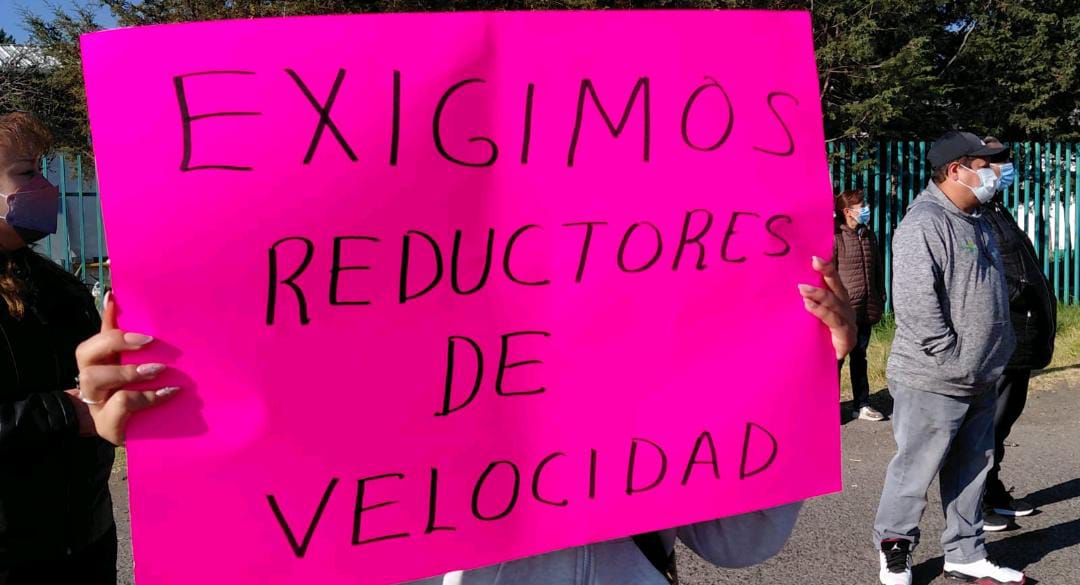 EXIGIMOS
REDUCTORES
DE
VELOCIDAD